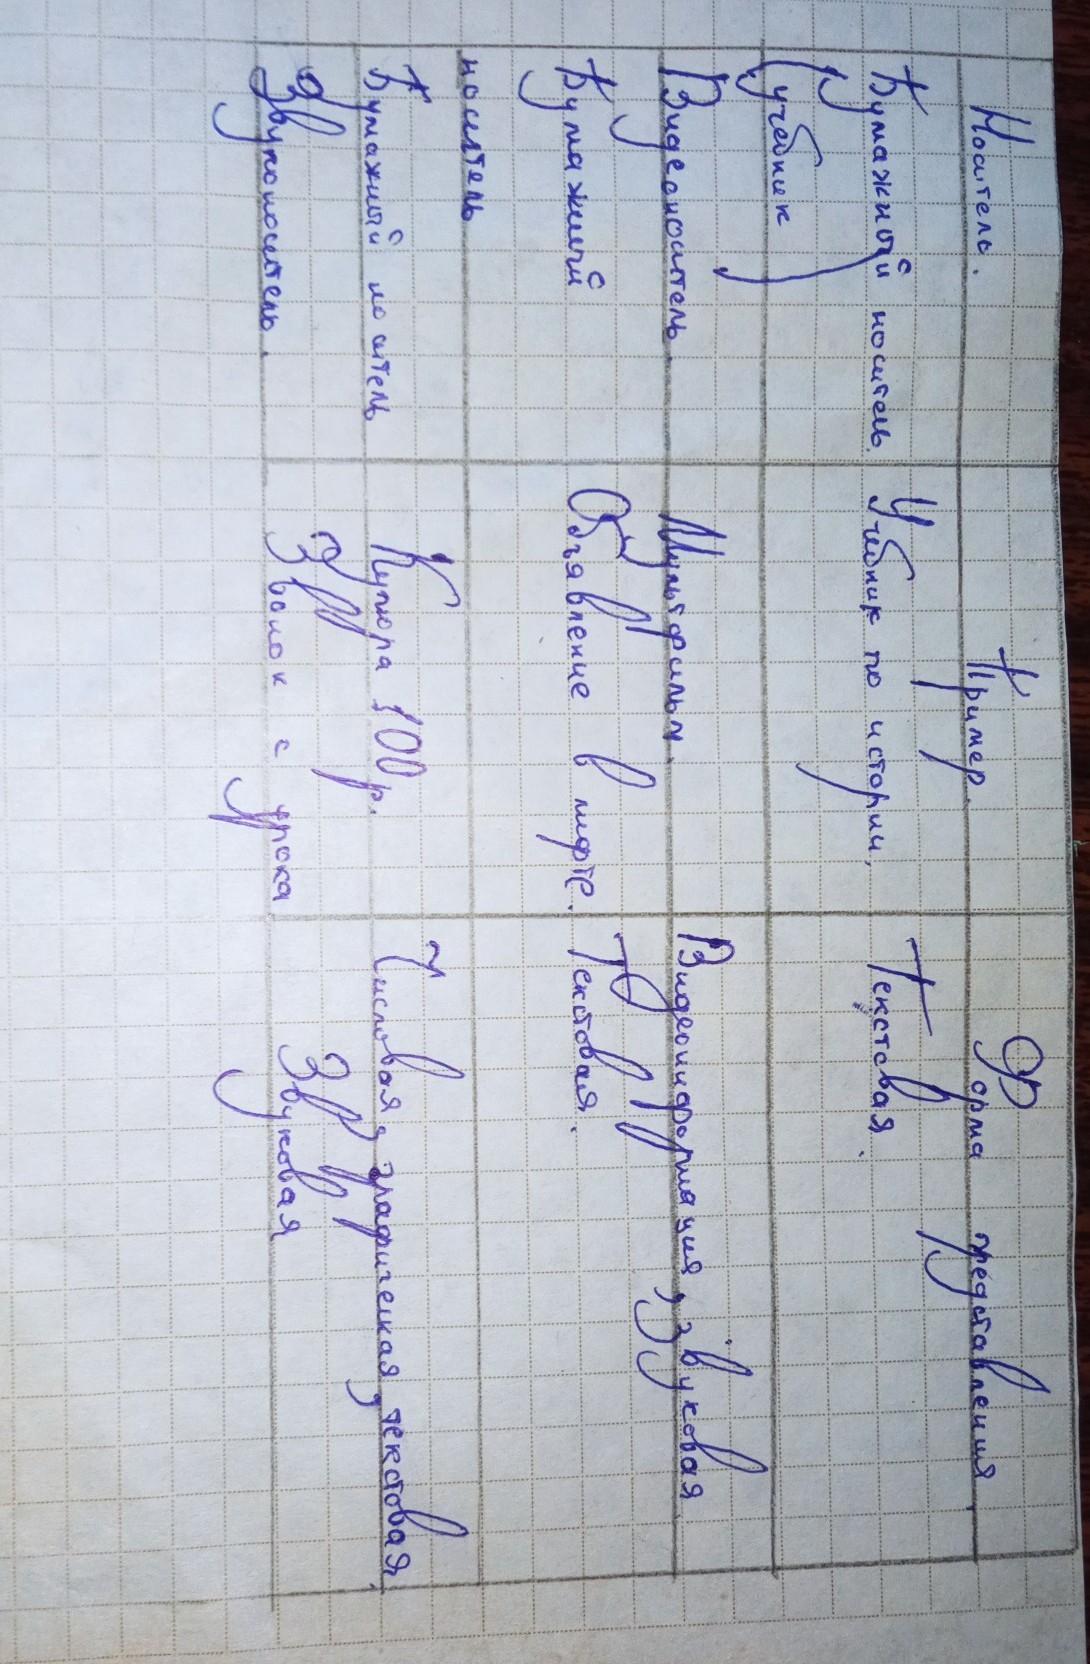 Носитель. Пример. Форма представления.
Бумажный носитель Учебник по истории. Текстовая.
(учебник)
Видеоноситель Мультфильм. Видеоинформация, звуковая
Бумажный Объявление в лифте. Текстовая.
носитель
Бумажный носитель Купюра 100 р. Числовая, графическая, текстовая.
Звуконоситель. Звонок с урока Звуковая